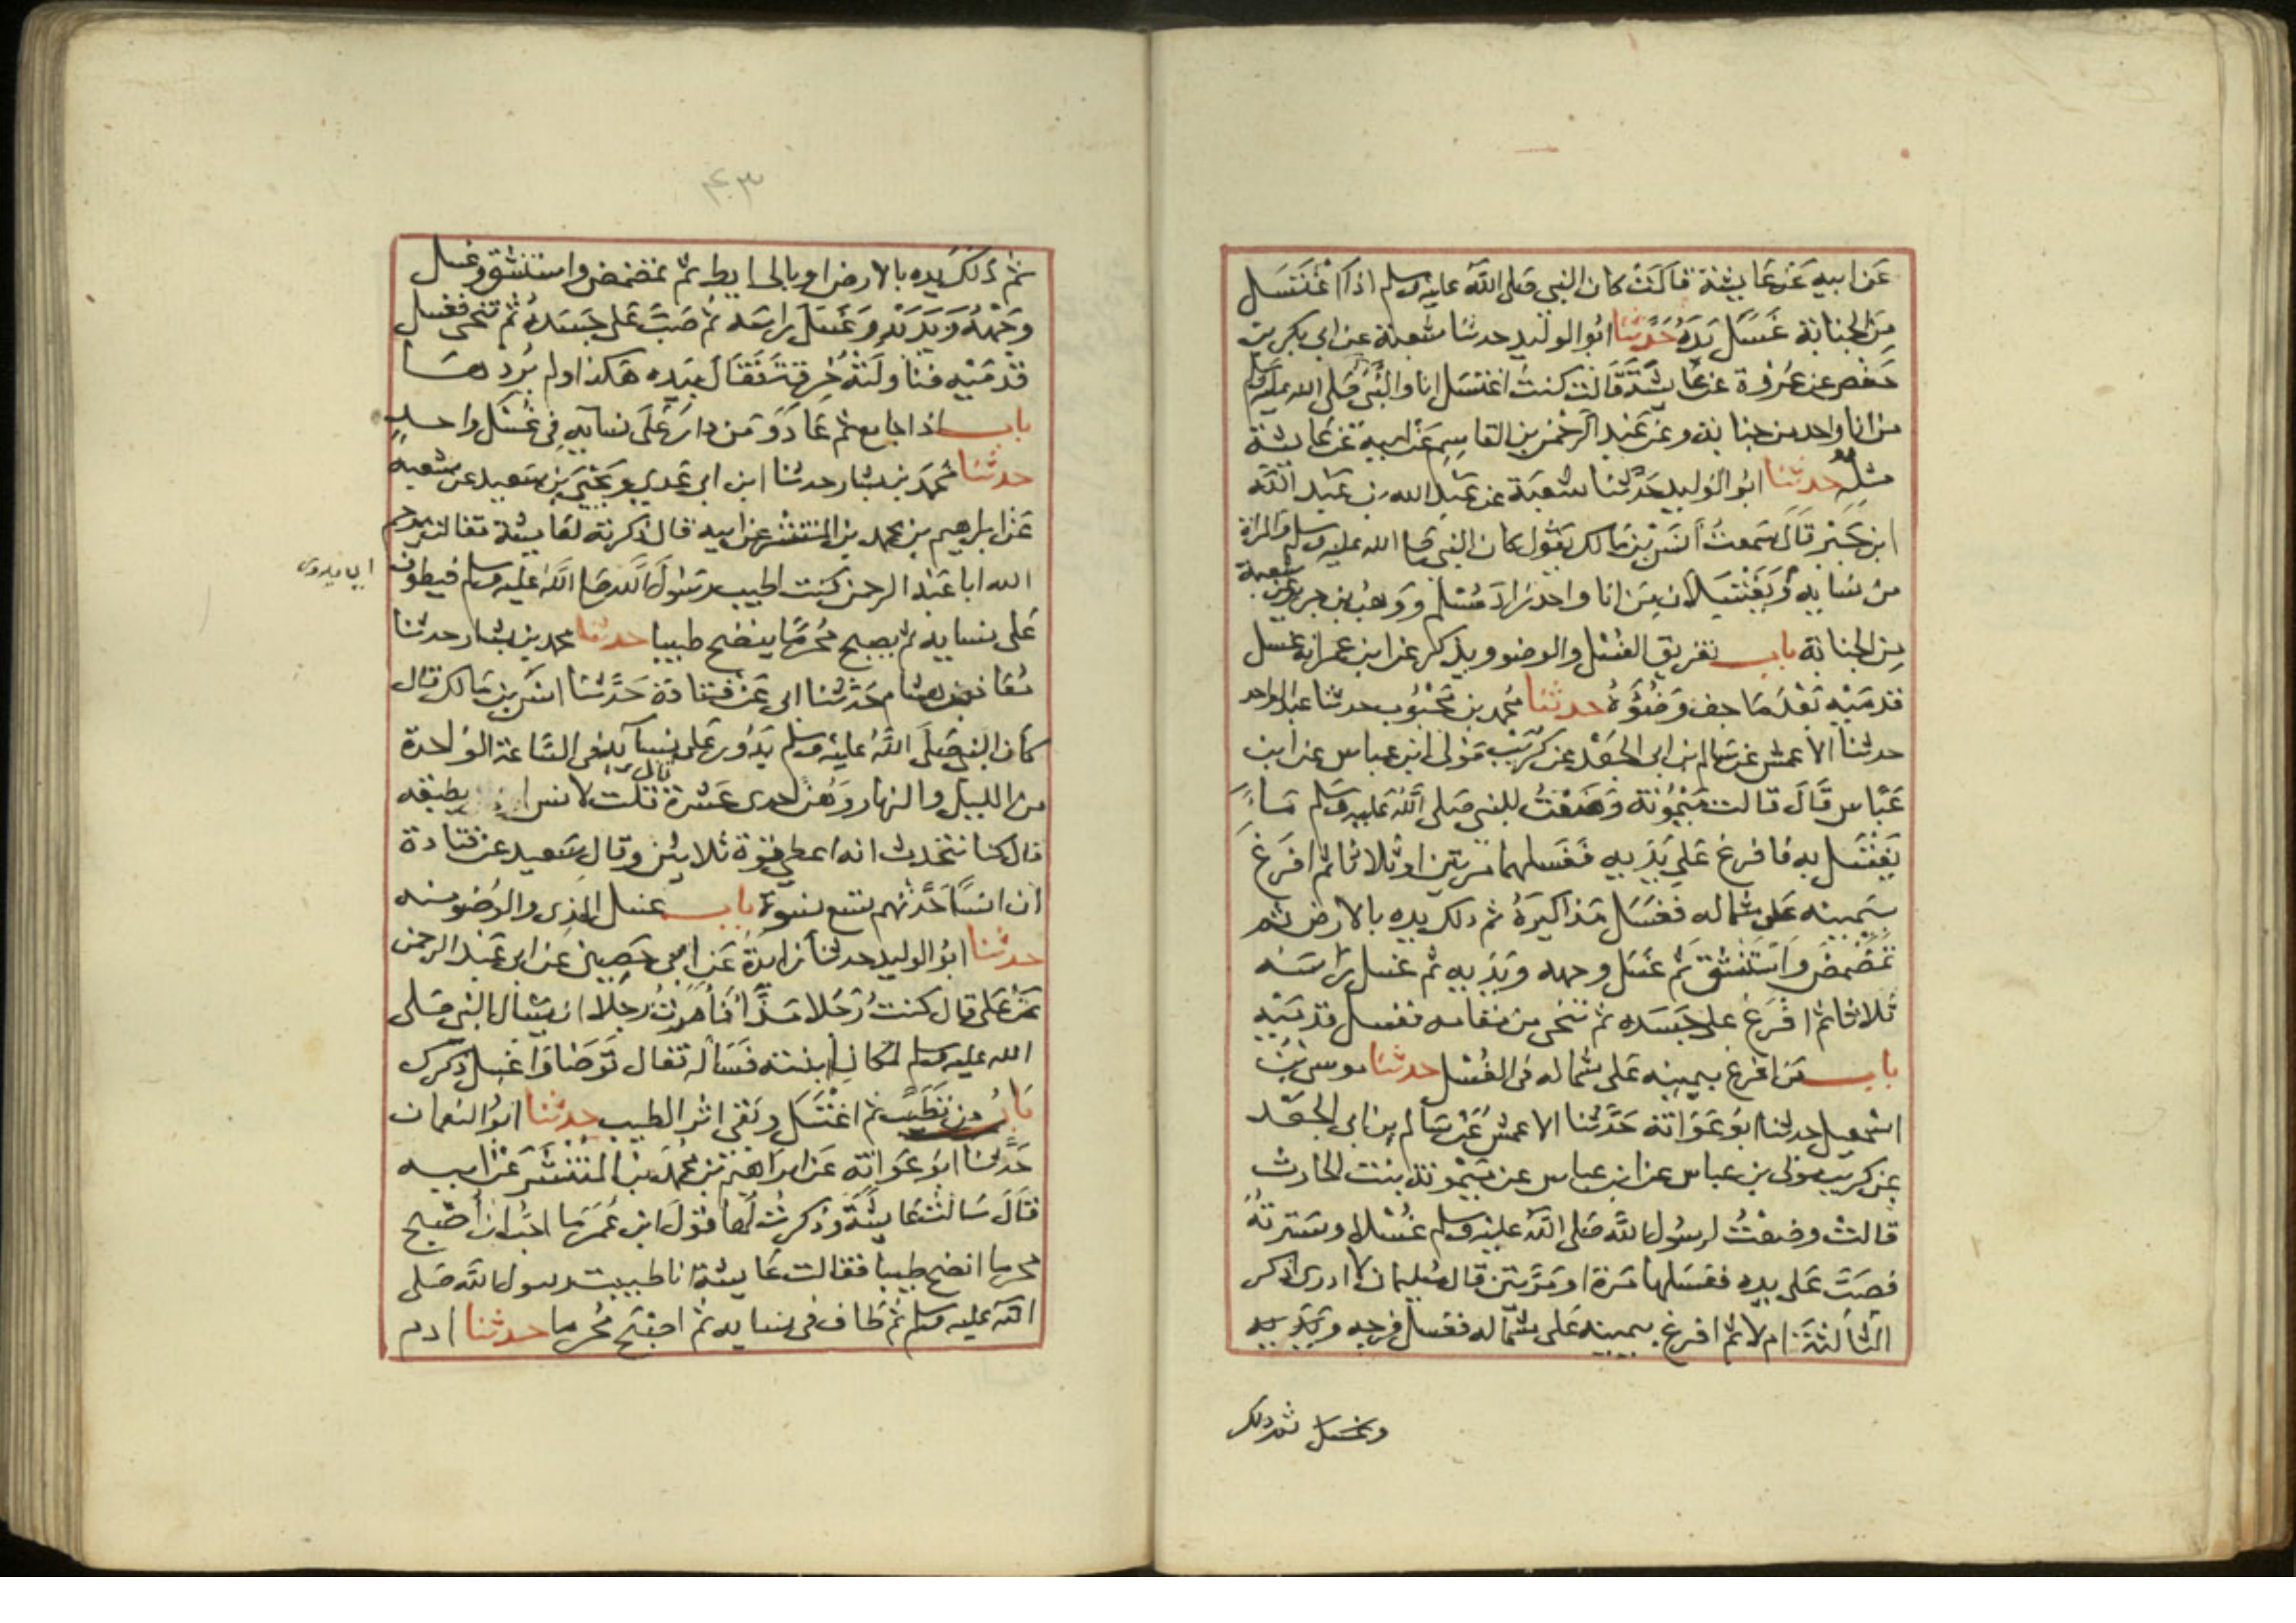 عن ابيه عن عايشة قالت كان النبي صلى الله عليه وسلم اذا اغتسل
من الجنابة غسل يده حدثنا ابو الوليد حدثنا شعبة عن ابي بكر بن
حفص عن عروة عن عايشة قالت كنت اغتسل انا والنبي صلى الله عليه وسلم
من انا واحد من جنابة وعن عبد الرحمن بن القاسم عن ابيه عن عايشة
مثله حدثنا ابو الوليد حدثنا شعبة عن عبد الله بن عبد الله
ابن جبر قال سمعت انس بن مالك يقول كان النبي صلى الله عليه وسلم والمراة
من نسايه يغتسلان من انا واحد زاد مسلم ووهب بن جرير عن شعبة
من الجنابة باب تفريق الغسل والوضو ويذكر عن ابن عمر انه غسل
قدميه بعد ما جف وضوؤه حدثنا محمد بن محبوب حدثنا عبد الواحد
حدثنا الاعمش عن سالم بن ابي الجعد عن كريب مولى ابن عباس عن ابن
عباس قال قالت ميمونة وضعت للنبي صلى الله عليه وسلم ماء
يغتسل به فافرغ على يديه فغسلهما مرتين او ثلاثا ثم افرغ
بيمينه على شماله فغسل مذاكيره ثم دلك يده بالارض ثم
تمضمض واستنشق ثم غسل وجهه ويديه ثم غسل راسه
ثلاثا ثم افرغ على جسده ثم تنحى من مقامه فغسل قدميه
باب من افرغ بيمينه على شماله في الغسل حدثنا موسى بن
اسمعيل حدثنا ابو عوانة حدثنا الاعمش عن سالم بن ابي الجعد
عن كريب مولى بن عباس عن ابن عباس عن ميمونة بنت الحارث
قالت وضعت لرسول الله صلى الله عليه وسلم غسلا وسترته
فصب على يده فغسلها مرة او مرتين قال سليمان لا ادري اذكر
الثالثة ام لا ثم افرغ بيمينه على شماله فغسل فرجه ويديه
وغسل ثم دلك
ثم دلك يده بالارض او بالحايط ثم تمضمض واستنشق وغسل
وجهه ويديه وغسل راسه ثم صب على جسده ثم تنحى فغسل
قدميه فناولته خرقة فقال بيده هكذا ولم يردها
باب اذا جامع ثم عاد ومن دار على نسايه في غسل واحد
حدثنا محمد بن بشار حدثنا ابن ابي عدي ويحيى بن سعيد عن شعبة
عن ابراهيم بن محمد بن المنتشر عن ابيه قال ذكرته لعايشة فقالت يرحم
الله ابا عبد الرحمن كنت اطيب رسول الله صلى الله عليه وسلم فيطوف
على نسايه ثم يصبح محرما ينضح طيبا حدثنا محمد بن بشار حدثنا
معاذ بن هشام حدثنا ابي عن قتادة حدثنا انس بن مالك قال
كان النبي صلى الله عليه وسلم يدور على نسايه في الساعة الواحدة
من الليل والنهار وهن احدى عشرة قال قلت لانس يطيقه
قال كنا نتحدث انه اعطي قوة ثلاثين وقال سعيد عن قتادة
ان انسا حدثهم تسع نسوة باب غسل المذي والوضو منه
حدثنا ابو الوليد حدثنا زايدة عن ابي حصين عن ابي عبد الرحمن
عن علي قال كنت رجلا مذا فامرت رجلا ان يسال النبي صلى
الله عليه وسلم لمكان ابنته فساله فقال توضا واغسل ذكرك
باب من تطيب ثم اغتسل وبقي اثر الطيب حدثنا ابو النعمان
حدثنا ابو عوانة عن ابراهيم بن محمد بن المنتشر عن ابيه
قال سالت عايشة وذكرت لها قول ابن عمر ما احب ان اصبح
محرما انضح طيبا فقالت عايشة انا طيبت رسول الله صلى
الله عليه وسلم ثم طاف في نسايه ثم اصبح محرما حدثنا ادم